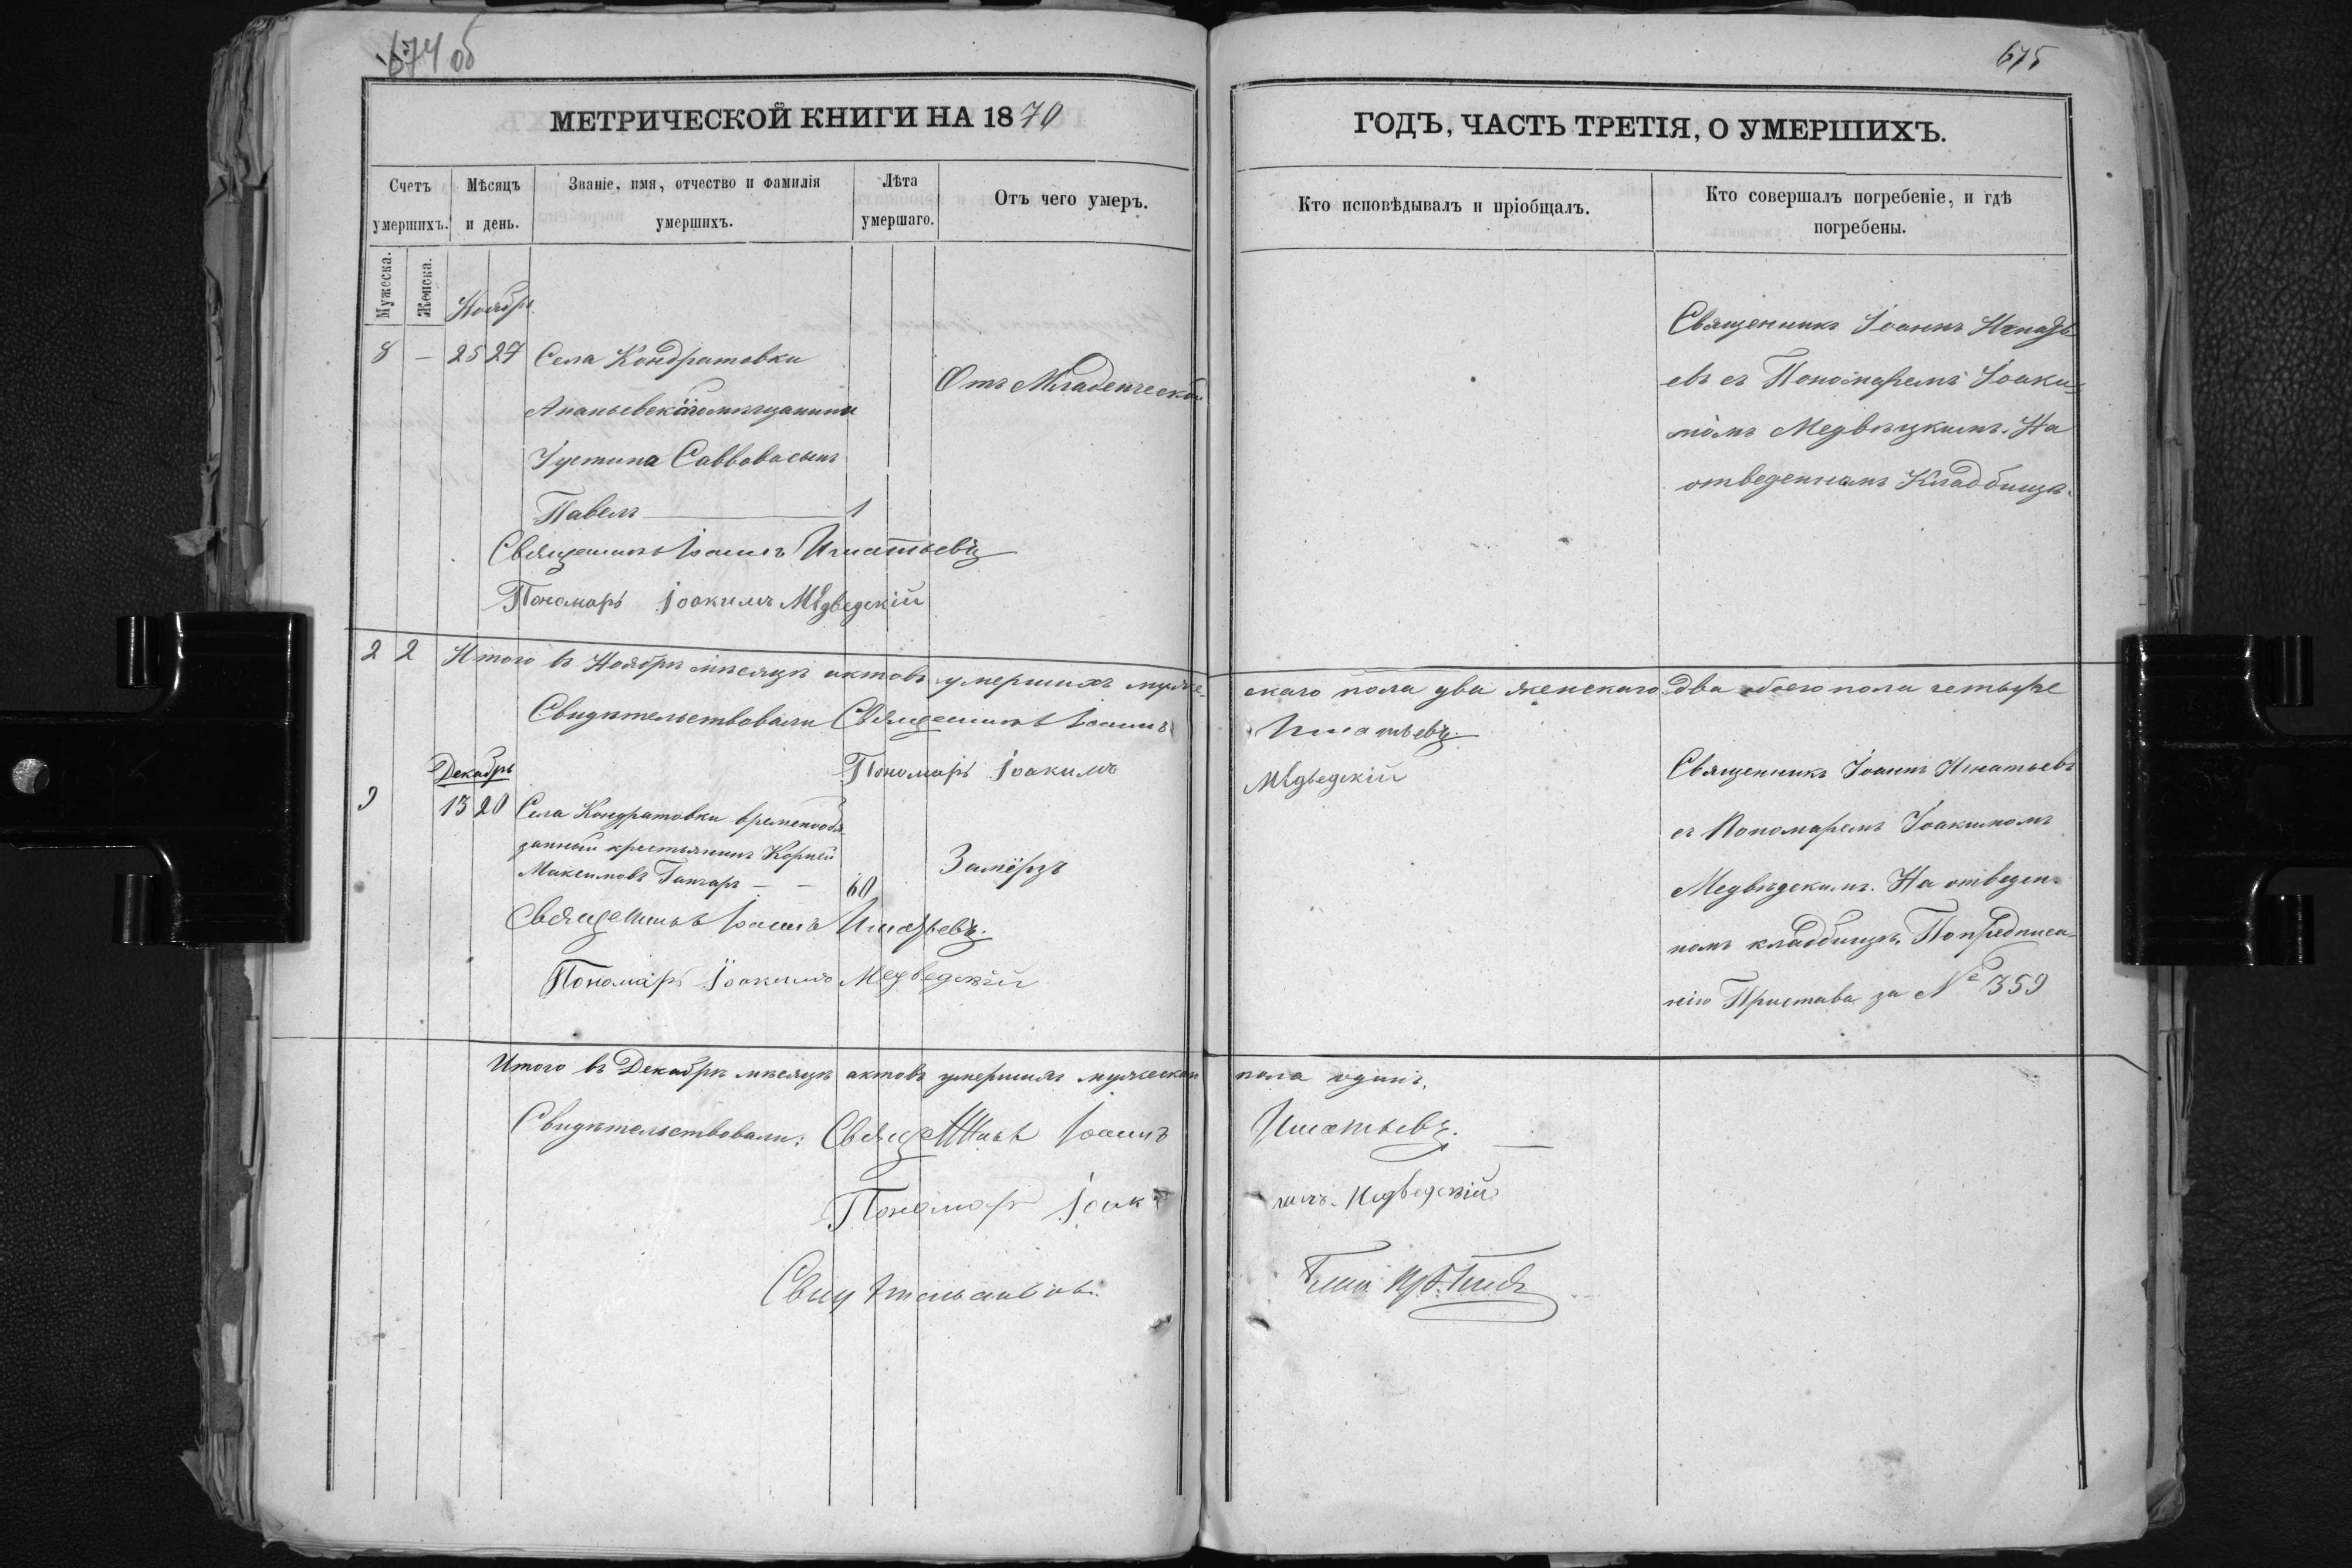 674 об
675
МЕТРИЧЕСКОЙ КНИГИ НА 1870
ГОДЪ, ЧАСТЬ ТРЕТІЯ, О УМЕРШИХЪ.
Счетъ умершихъ.
Мѣсяцъ и день.
Званіе, имя, отчество и фамилія умершихъ.
Лѣта умершаго.
Отъ чего умеръ.
Кто исповѣдывалъ и пріобщалъ.
Кто совершалъ погребеніе, и гдѣ погребены.
Мужеска.
Женска.
Ноябрь
8 — 25 27 Села Кондратовки
Ананьевскаго мѣщанина
Іустина Саввова сынъ
Павелъ — 1
Отъ Младенческой
Священникъ Іоаннъ Игнать
евъ съ Пономаремъ Іоаки-
момъ Медвѣцкимъ. На
отведенномъ Кладбищѣ.
Священникъ Іоаннъ Игнатьевъ
Пономарь Іоакимъ Медведскій
2 2 Итого въ Ноябрѣ мѣсяцѣ актовъ умершихъ муже-
скаго пола два женскаго два обоего пола четыре
Свидѣтельствовали Священникъ Іоаннъ Игнатьевъ.
Пономарь Іоакимъ Медведскій
Декабрь
9 13 20 Села Кондратовки временнообя
занный крестьянинъ Корнѣй
Максимовъ Ганчаръ — — 60
Замёрзъ
Священникъ Іоаннъ Игнатьевъ
съ Пономаремъ Іоакимомъ
Медвѣдскимъ. На отведен-
номъ кладбищѣ. По предписа-
нію Пристава за № 359
Священникъ Іоаннъ Игнатьевъ.
Пономарь Іоакимъ Медведскій
Итого въ Декабрѣ мѣсяцѣ актовъ умершихъ мужескаго пола одинъ.
Свидѣтельствовали: Священникъ Іоаннъ Игнатьевъ.
Пономарь Іоакимъ Медведскій